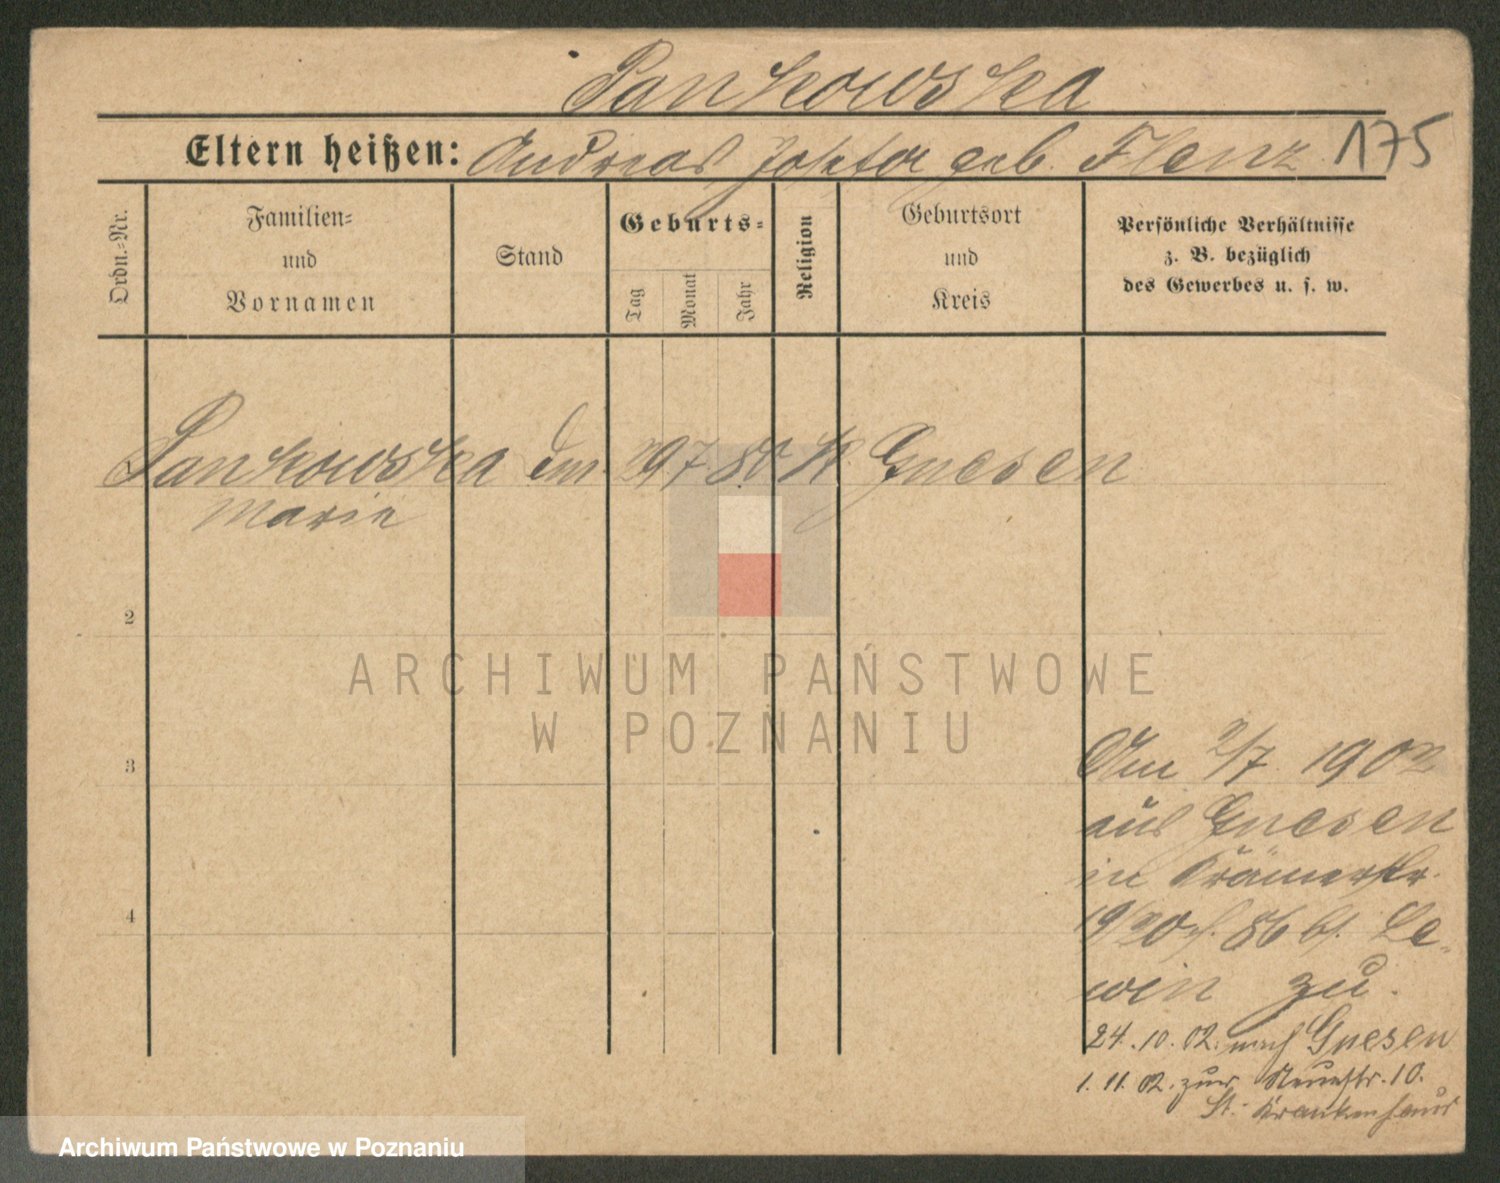 Pankowska
Eltern heißen: Andreas Josefa geb. Flenz 175
Ordn.-Nr.
Familien-
und
Vornamen
Stand
Geburts-
Tag
Monat
Jahr
Religion
Geburtsort
und
Kreis
Persönliche Verhältnisse
z. B. bezüglich
des Gewerbes u. s. w.
Pankowska 29 7 80 k. Gnesen
Marie
2
ARCHIWUM PAŃSTWOWE
W POZNANIU
3
Am 2/7. 1902
aus Gnesen
in Krämerstr.
4
19/20 bf. Le-
win zu.
24. 10. 02. nach Gnesen
1. 11. 02. zur Neuestr. 10.
St. Krankenhaus
Archiwum Państwowe w Poznaniu